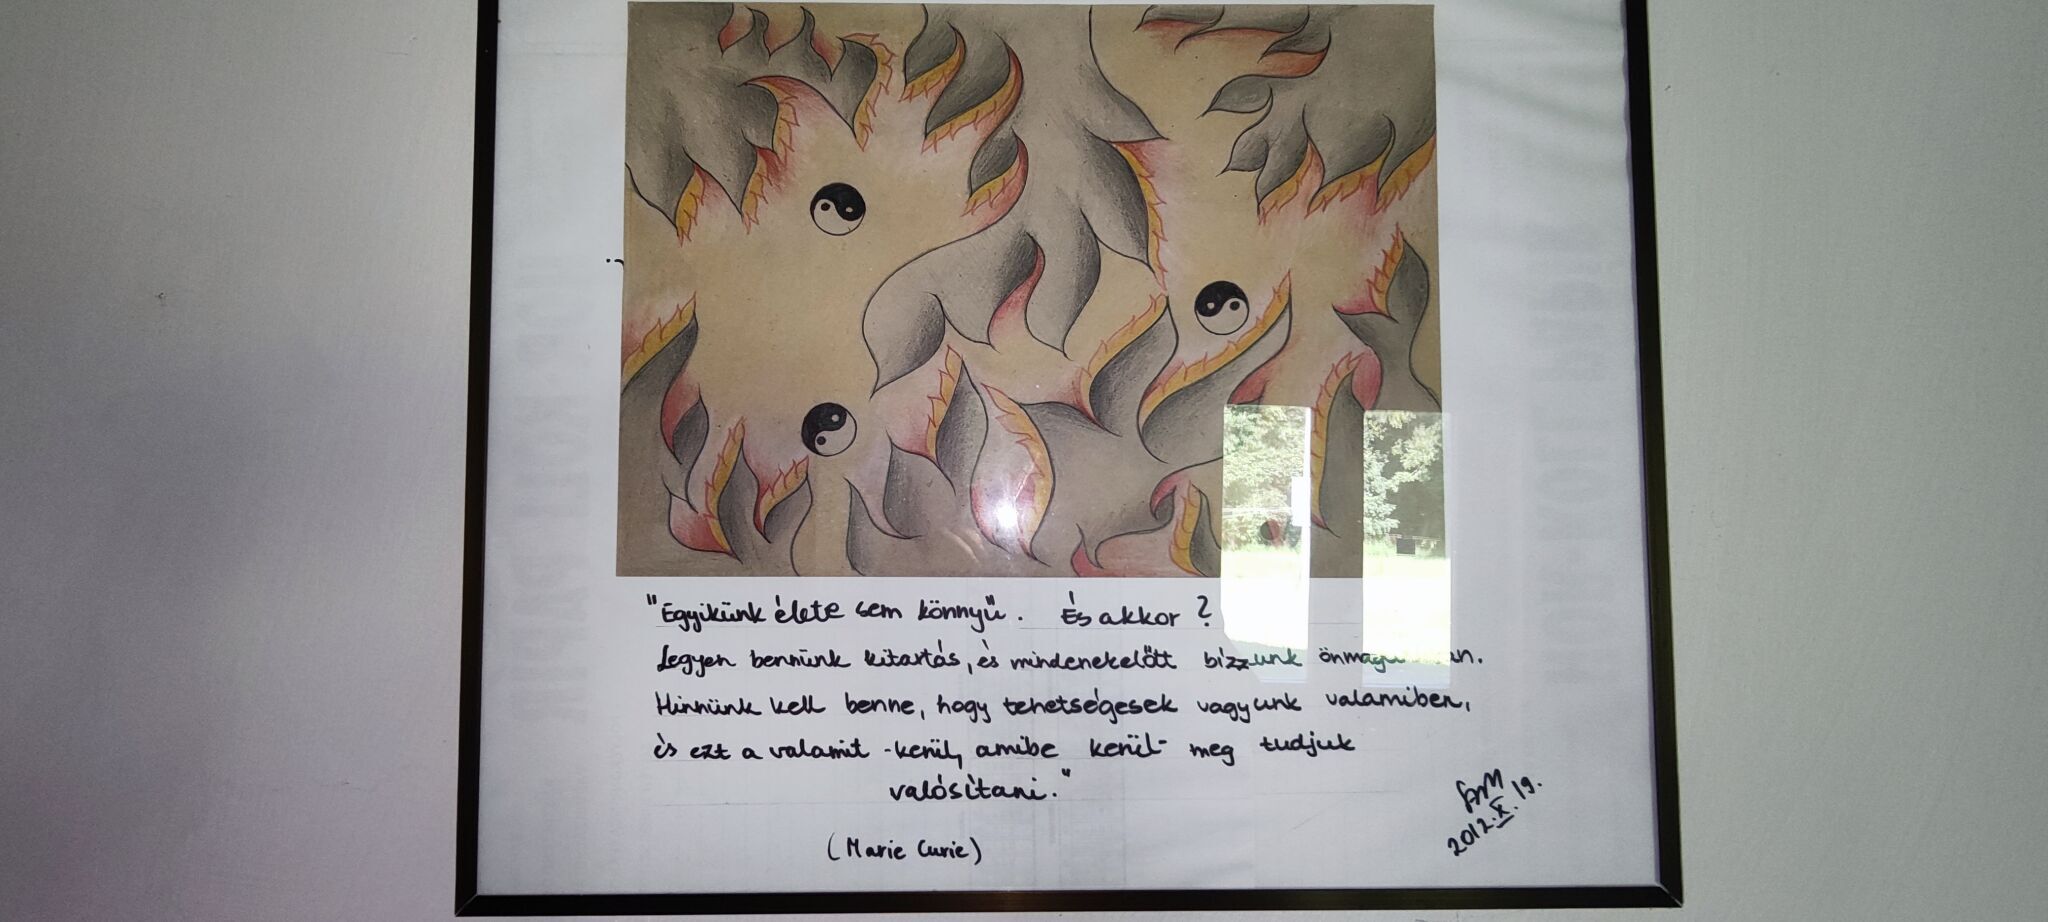 "Egyikünk élete sem könnyű. És akkor?
Legyen bennünk kitartás, és mindenekelőtt bízzunk
Hinnünk kell benne, hogy tehetségesek vagyunk valamiben,
és ezt a valamit - kerül, amibe kerül - meg tudjuk
valósítani."
(Marie Curie)
2012.X.19.